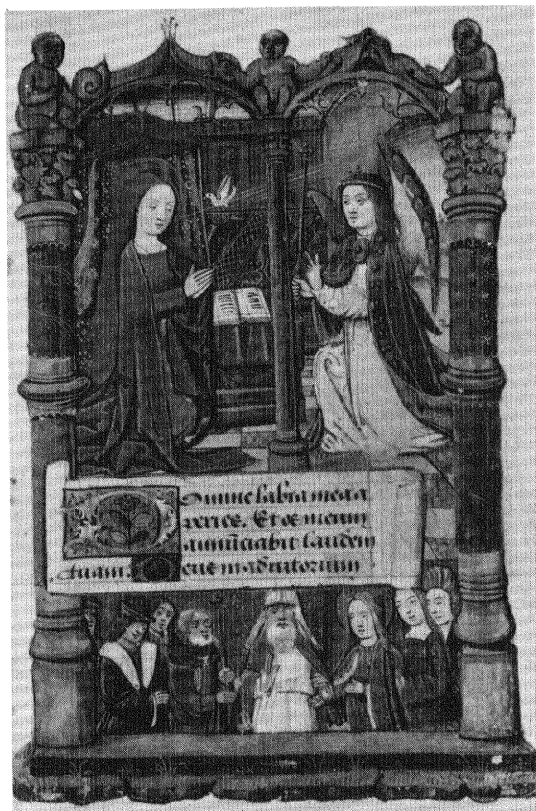 Domine labia mea a
peries. Et os meum
annūciabit laudem
tuam. Deus in adiutorium